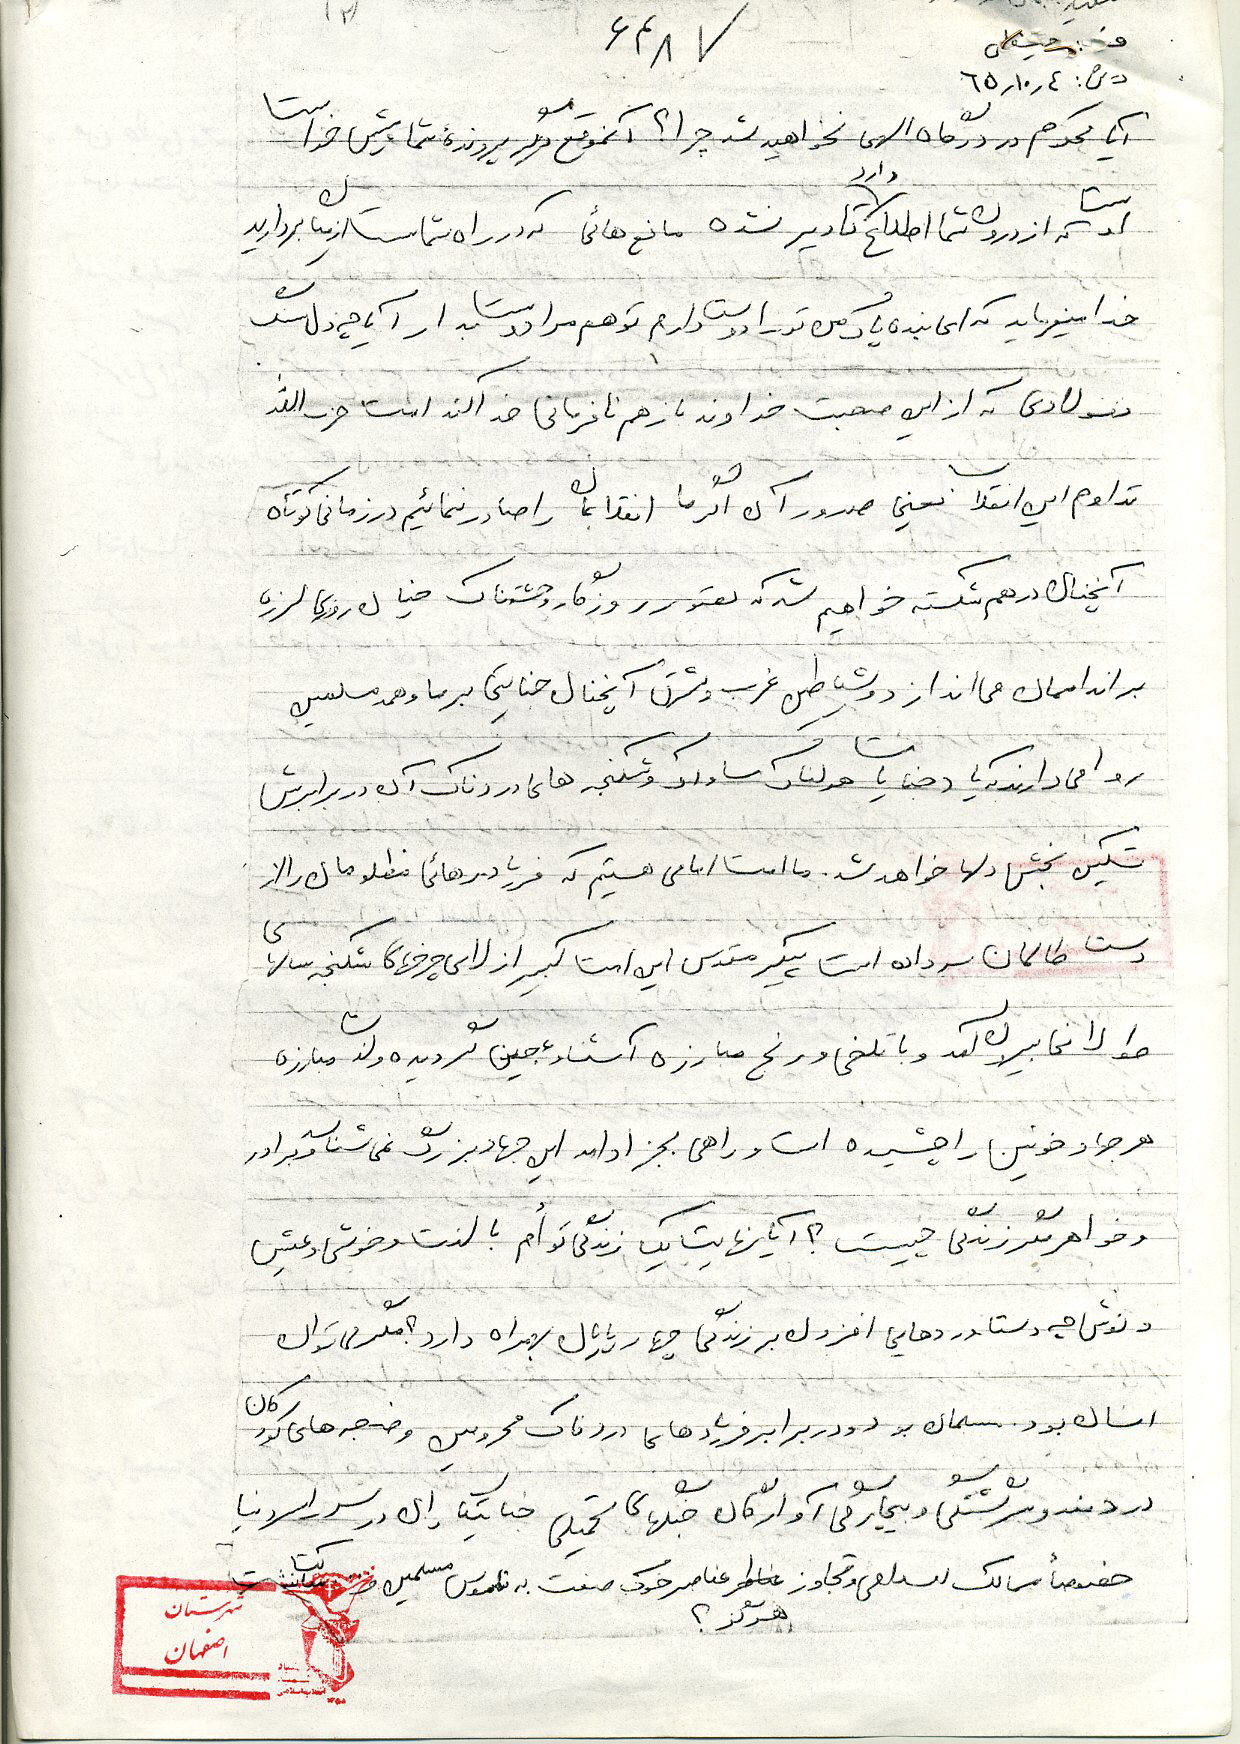 (۲)
۶۴۸۷
۶۵٫۱۰٫۴
آیا محکوم در درگاه الهی نخواهید شد چرا؟ آنموقع دیگر پروندهٔ شما پیش خداست
اوست که از درون شما اطلاع دارد تا دیر نشده مانع هائی که در راه شماست از میان بردارید
خدا میفرماید که ای بنده پاک من تو را دوست دارم تو هم مرا دوست بدار آیا چه دل سنگ
و فولادی که از این صحبت خداوند باز هم نافرمانی خدا کند امت حزب الله
تداوم این انقلاب یعنی صدور آن اگر ما انقلابمان را صادر ننمائیم در زمانی کوتاه
آنچنان درهم شکسته خواهیم شد که تصور روزگار وحشتناک چنان روزی لرزه
بر اندامان می اندازد و شیاطین غرب و شرق آنچنان جنایتی بر ما و همه مسلمین
روا می دارند که یاد جنایات هولناک ساواک و شکنجه های دردناک آن در برابرش
تسکین بخش دلها خواهد شد. ما امت امامی هستیم که فریاد رهائی مظلومان را از
دست ظالمان سر داده است پیکر مقدس این امت کبیر از لای چرخهای شکنجه سالهای
طولانی بیرون آمد و با تلخی و رنج مبارزه آشنا و عجین گردیده و لذت مبارزه
هر جهاد خونین را چشیده است و راهی بجز ادامه این جهاد بزرگ نمی شناسد برادر
و خواهر مگر زندگی چیست؟ آیا نهایت یک زندگی توأم با لذت و خوشی و عیش
و نوش چه دستاوردهایی افزون بر زندگی چهارپایان بهمراه دارد؟ مگر می توان
انسان بود. مسلمان بود و در برابر فریادهای دردناک محرومین و ضجه های کودکان
دردمند و سرگشتگی و بیچارگی آوارگان جنگهای تحمیلی جنایتکاران در سراسر دنیا
خصوصاً ممالک اسلامی و تجاوز عناصر خوک صفت به ناموس مسلمین ساکت نشست
هرگز؟
شهرستان
اصفهان